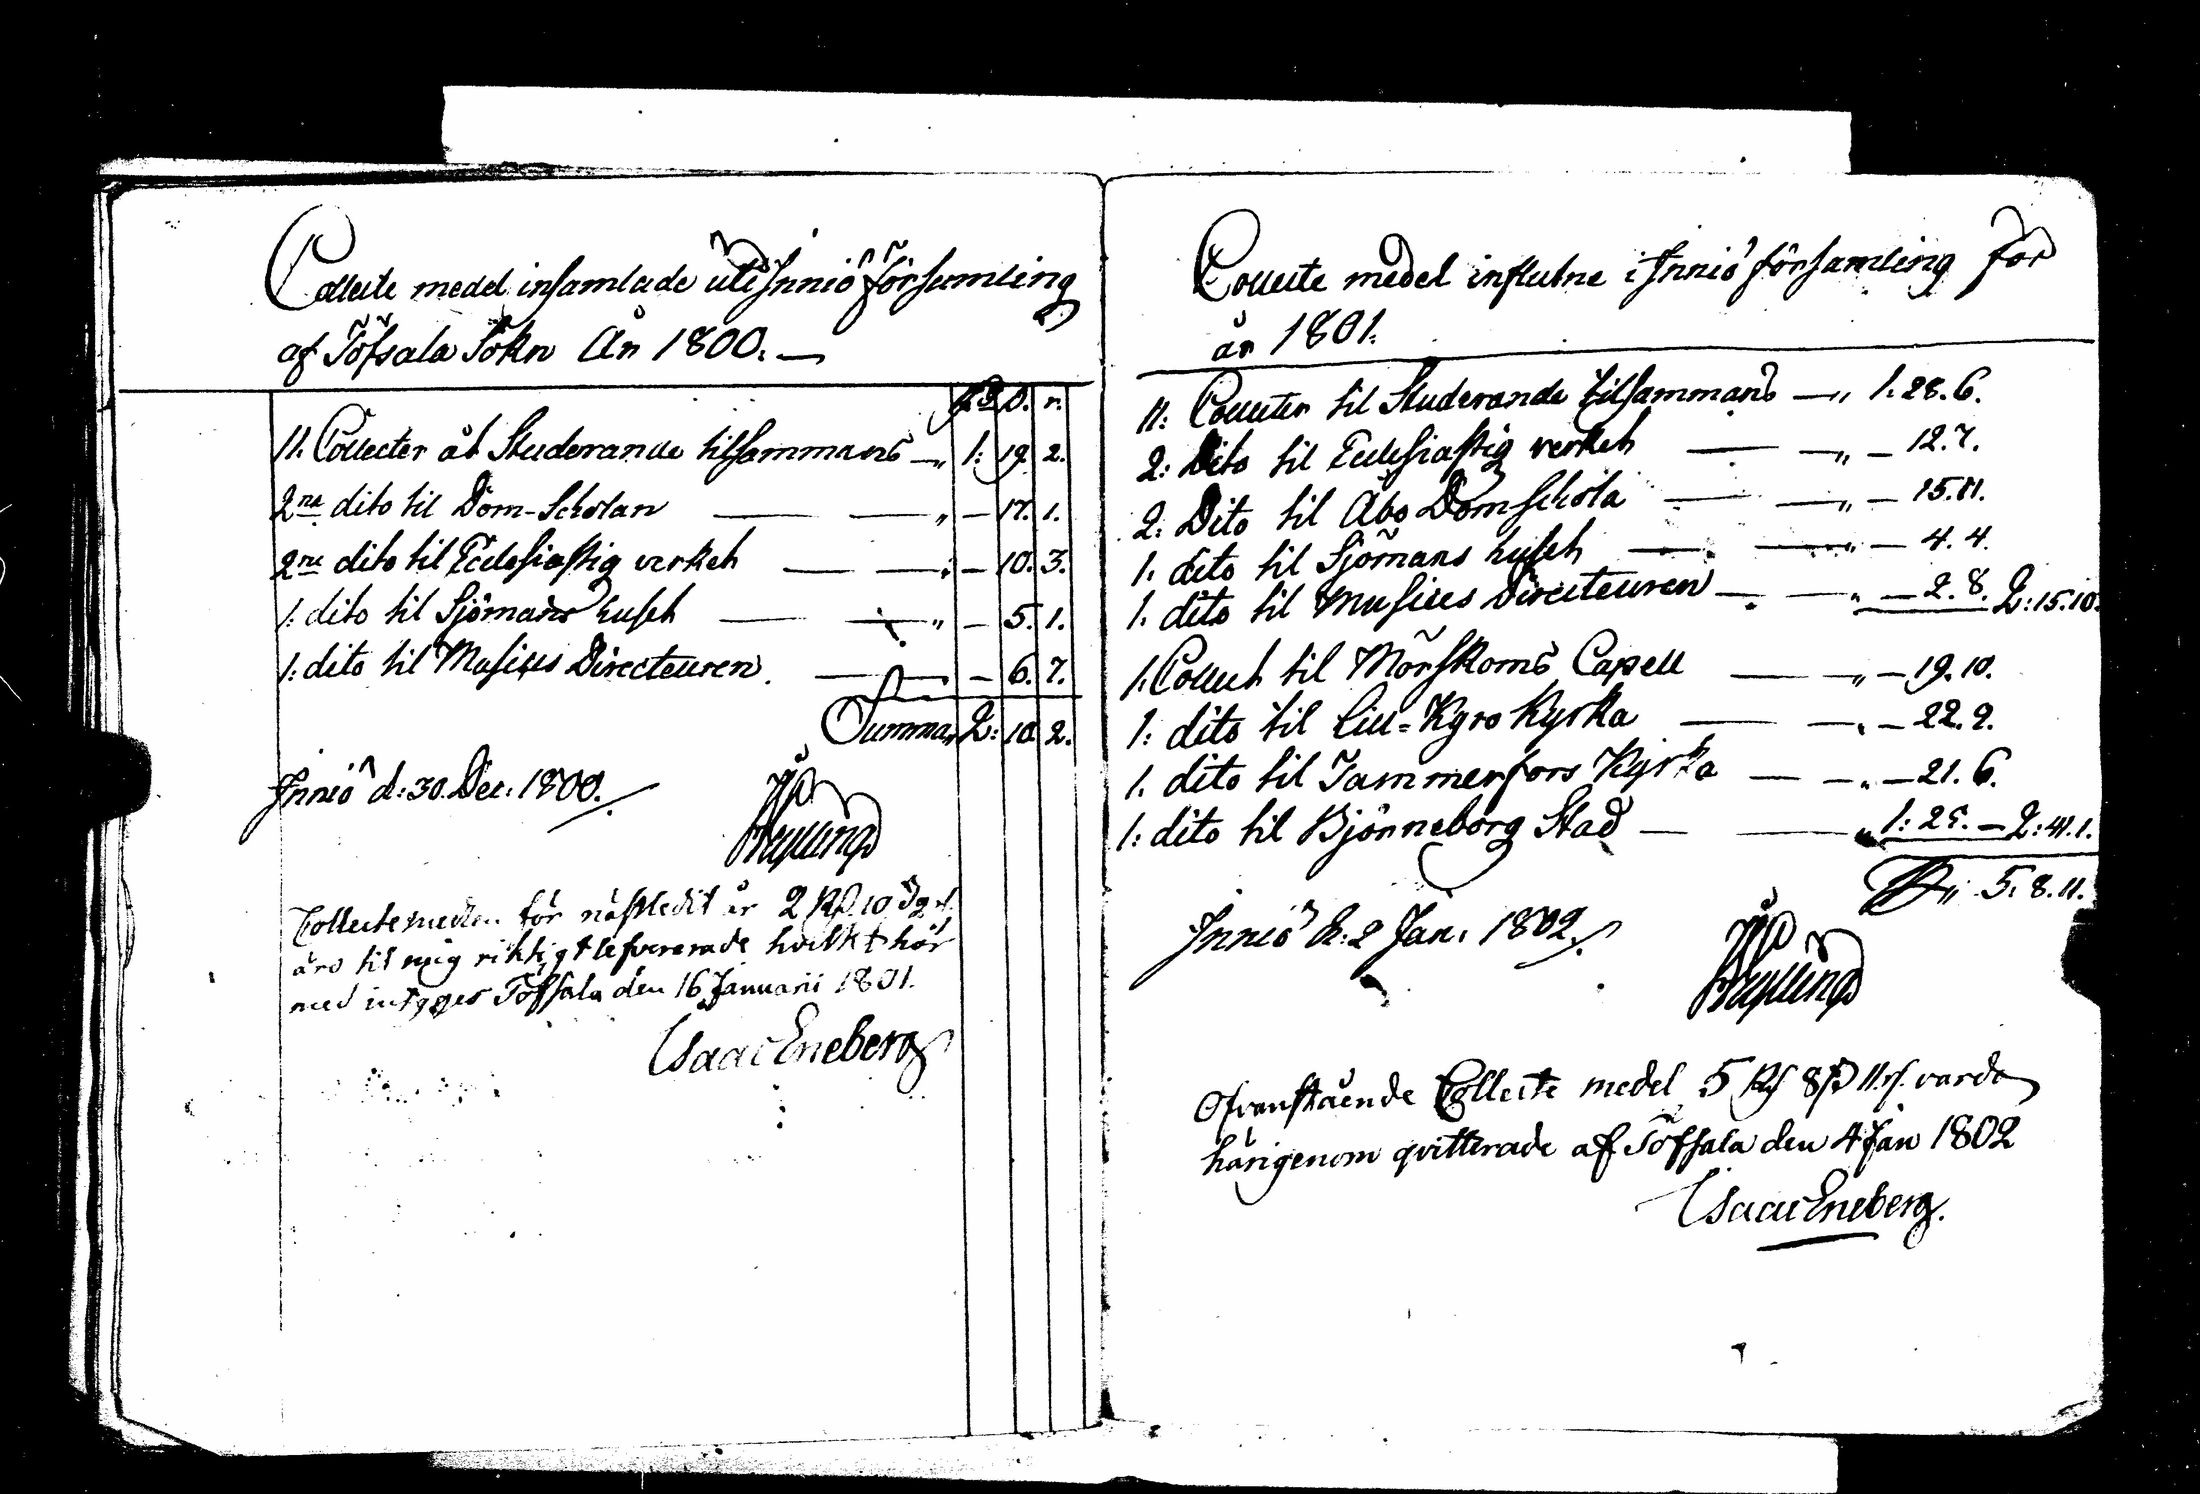 Collecte medel insamlade uti Inniö församling
af Töfsala Sokn År 1800. —
Rd ß. r.
11. Collecter åt Studerande tilsammans —„ 1: 19. 2.
2ne dito til Dom-Scholan — — „ — 17. 1.
2ne dito til Ecclesiastiq verket — — „ — 10. 3.
1: dito til Sjömans huset — — „ — 5. 1.
1: dito til Musices Directeuren. — — — 6. 7.
Summa„ 2: 10. 2.
Inniö d: 30. Dec: 1800.
Collectemedlen för nästledit år 2 Rd. 10 ß 2 r.
äro til mig riktigt lefvererade hvilket här
med intyges Töfsala den 16 Januarii 1801.
Isaac Eneberg
Collecte medel influtne i Inniö församling för
år 1801.
11: Collecter til Studerande tilsammans —„ 1. 28. 6.
2: Dito til Ecclesiastiq verket — —„ — 12. 7.
2: Dito til Åbo Dom Schola — —„ — 15. 11.
1. dito til Sjömans huset — — „ — 4. 4.
1. dito til Musices Directeuren — — „ — 2. 8. 2: 15. 10.
1. Collect til Mörskoms Capell — —„ — 19. 10.
1: dito til Lill-Kyro Kyrka — —„ — 22. 9.
1. dito til Tammerfors Kyrka — — „ — 21. 6.
1: dito til Björneborg Stad — — 1: 25. — 2: 41. 1.
5. 8. 11.
Inniö d: 2 Jan: 1802.
Ofvanstående Collecte medel 5 Rd 8 ß 11 r. varda
härigenom qvitterade af Töfsala den 4 Jan 1802
Isaac Eneberg.